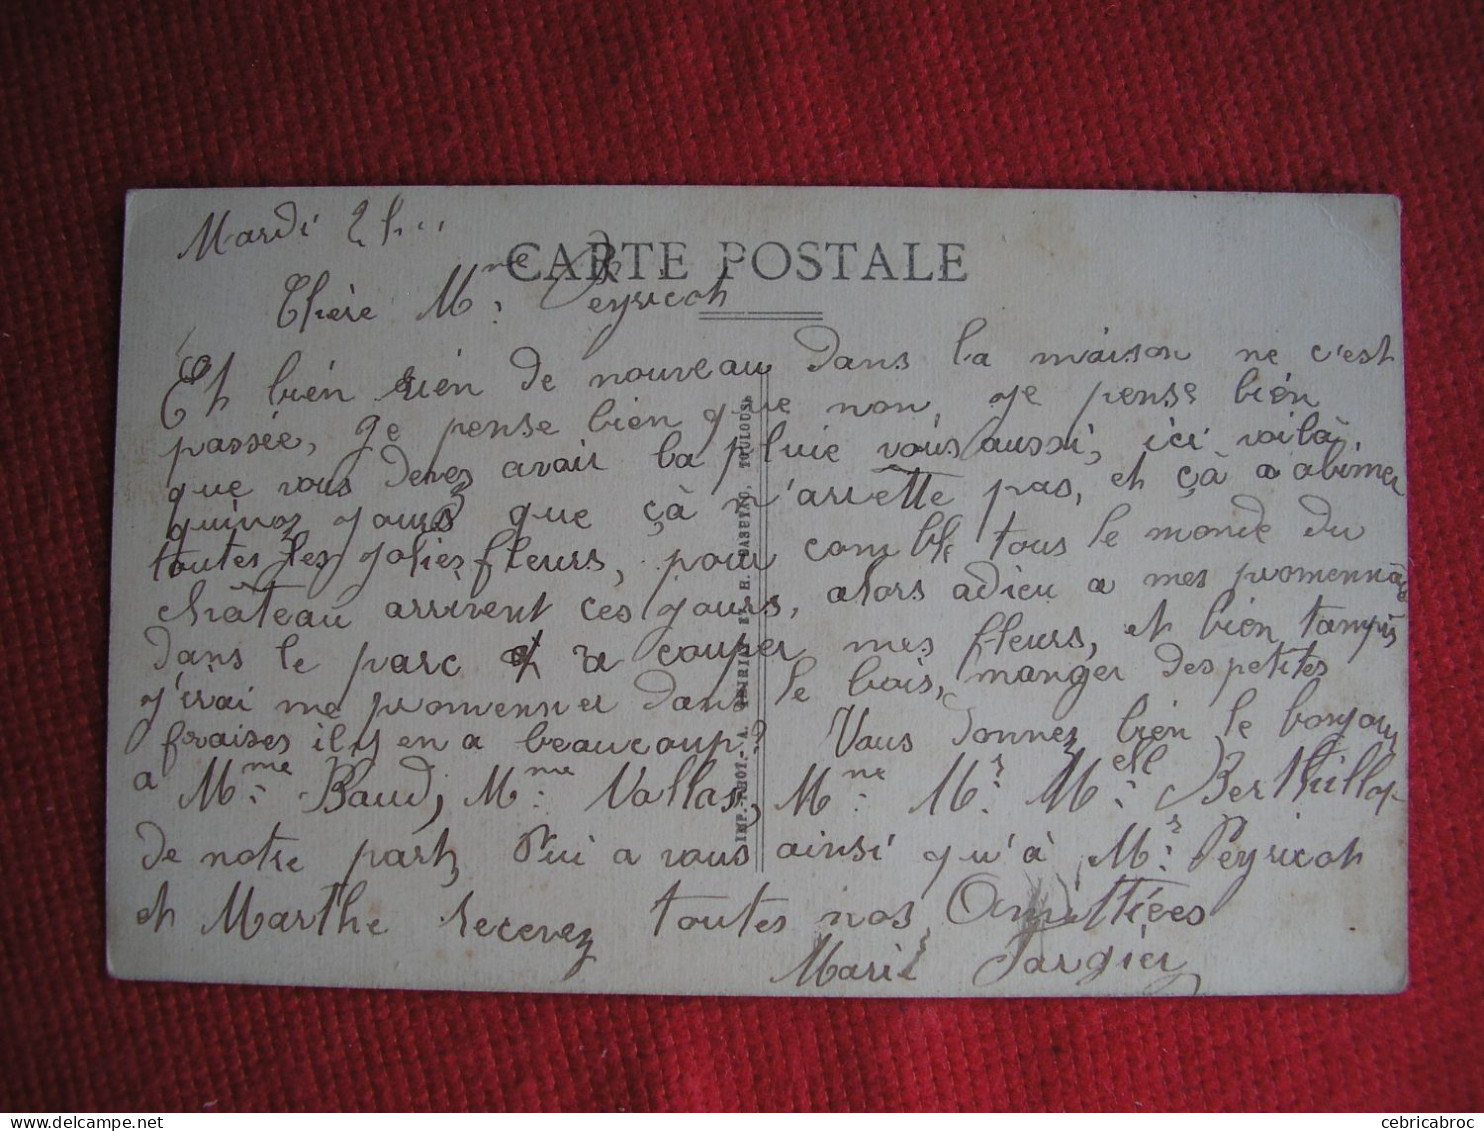 Mardi 2 h...
CARTE POSTALE
Chère Mme Peyricot
Et bién rién de nouveau dans la maison ne c'est
passée, Je pense bién que non, Je pense bién
que vous devez avoir la pluie vous aussi, ici voilà
quinze jours que çà n'arrette pas, et çà a abimer
toutes les jolies fleurs, pour comble tous le monde du
château arrivent ces jours, alors adieu a mes promennade
dans le parc et a couper mes fleurs, et bién tampis
j'irai me promenner dans le bois, manger des petites
fraises il y en a beaucoup? Vous donnez bién le bonjour
a Mme Baud, Mme Vallas, Mme Mr Melle Berthillot
de notre part, Pui a vous ainsi qu'à Mr Peyricot
et Marthe recevez toutes nos Amittiées
Marie Sargier
IMP. PHOT. - A. THIRIAT ET H. BASUYAU, TOULOUSE
cebricabroc